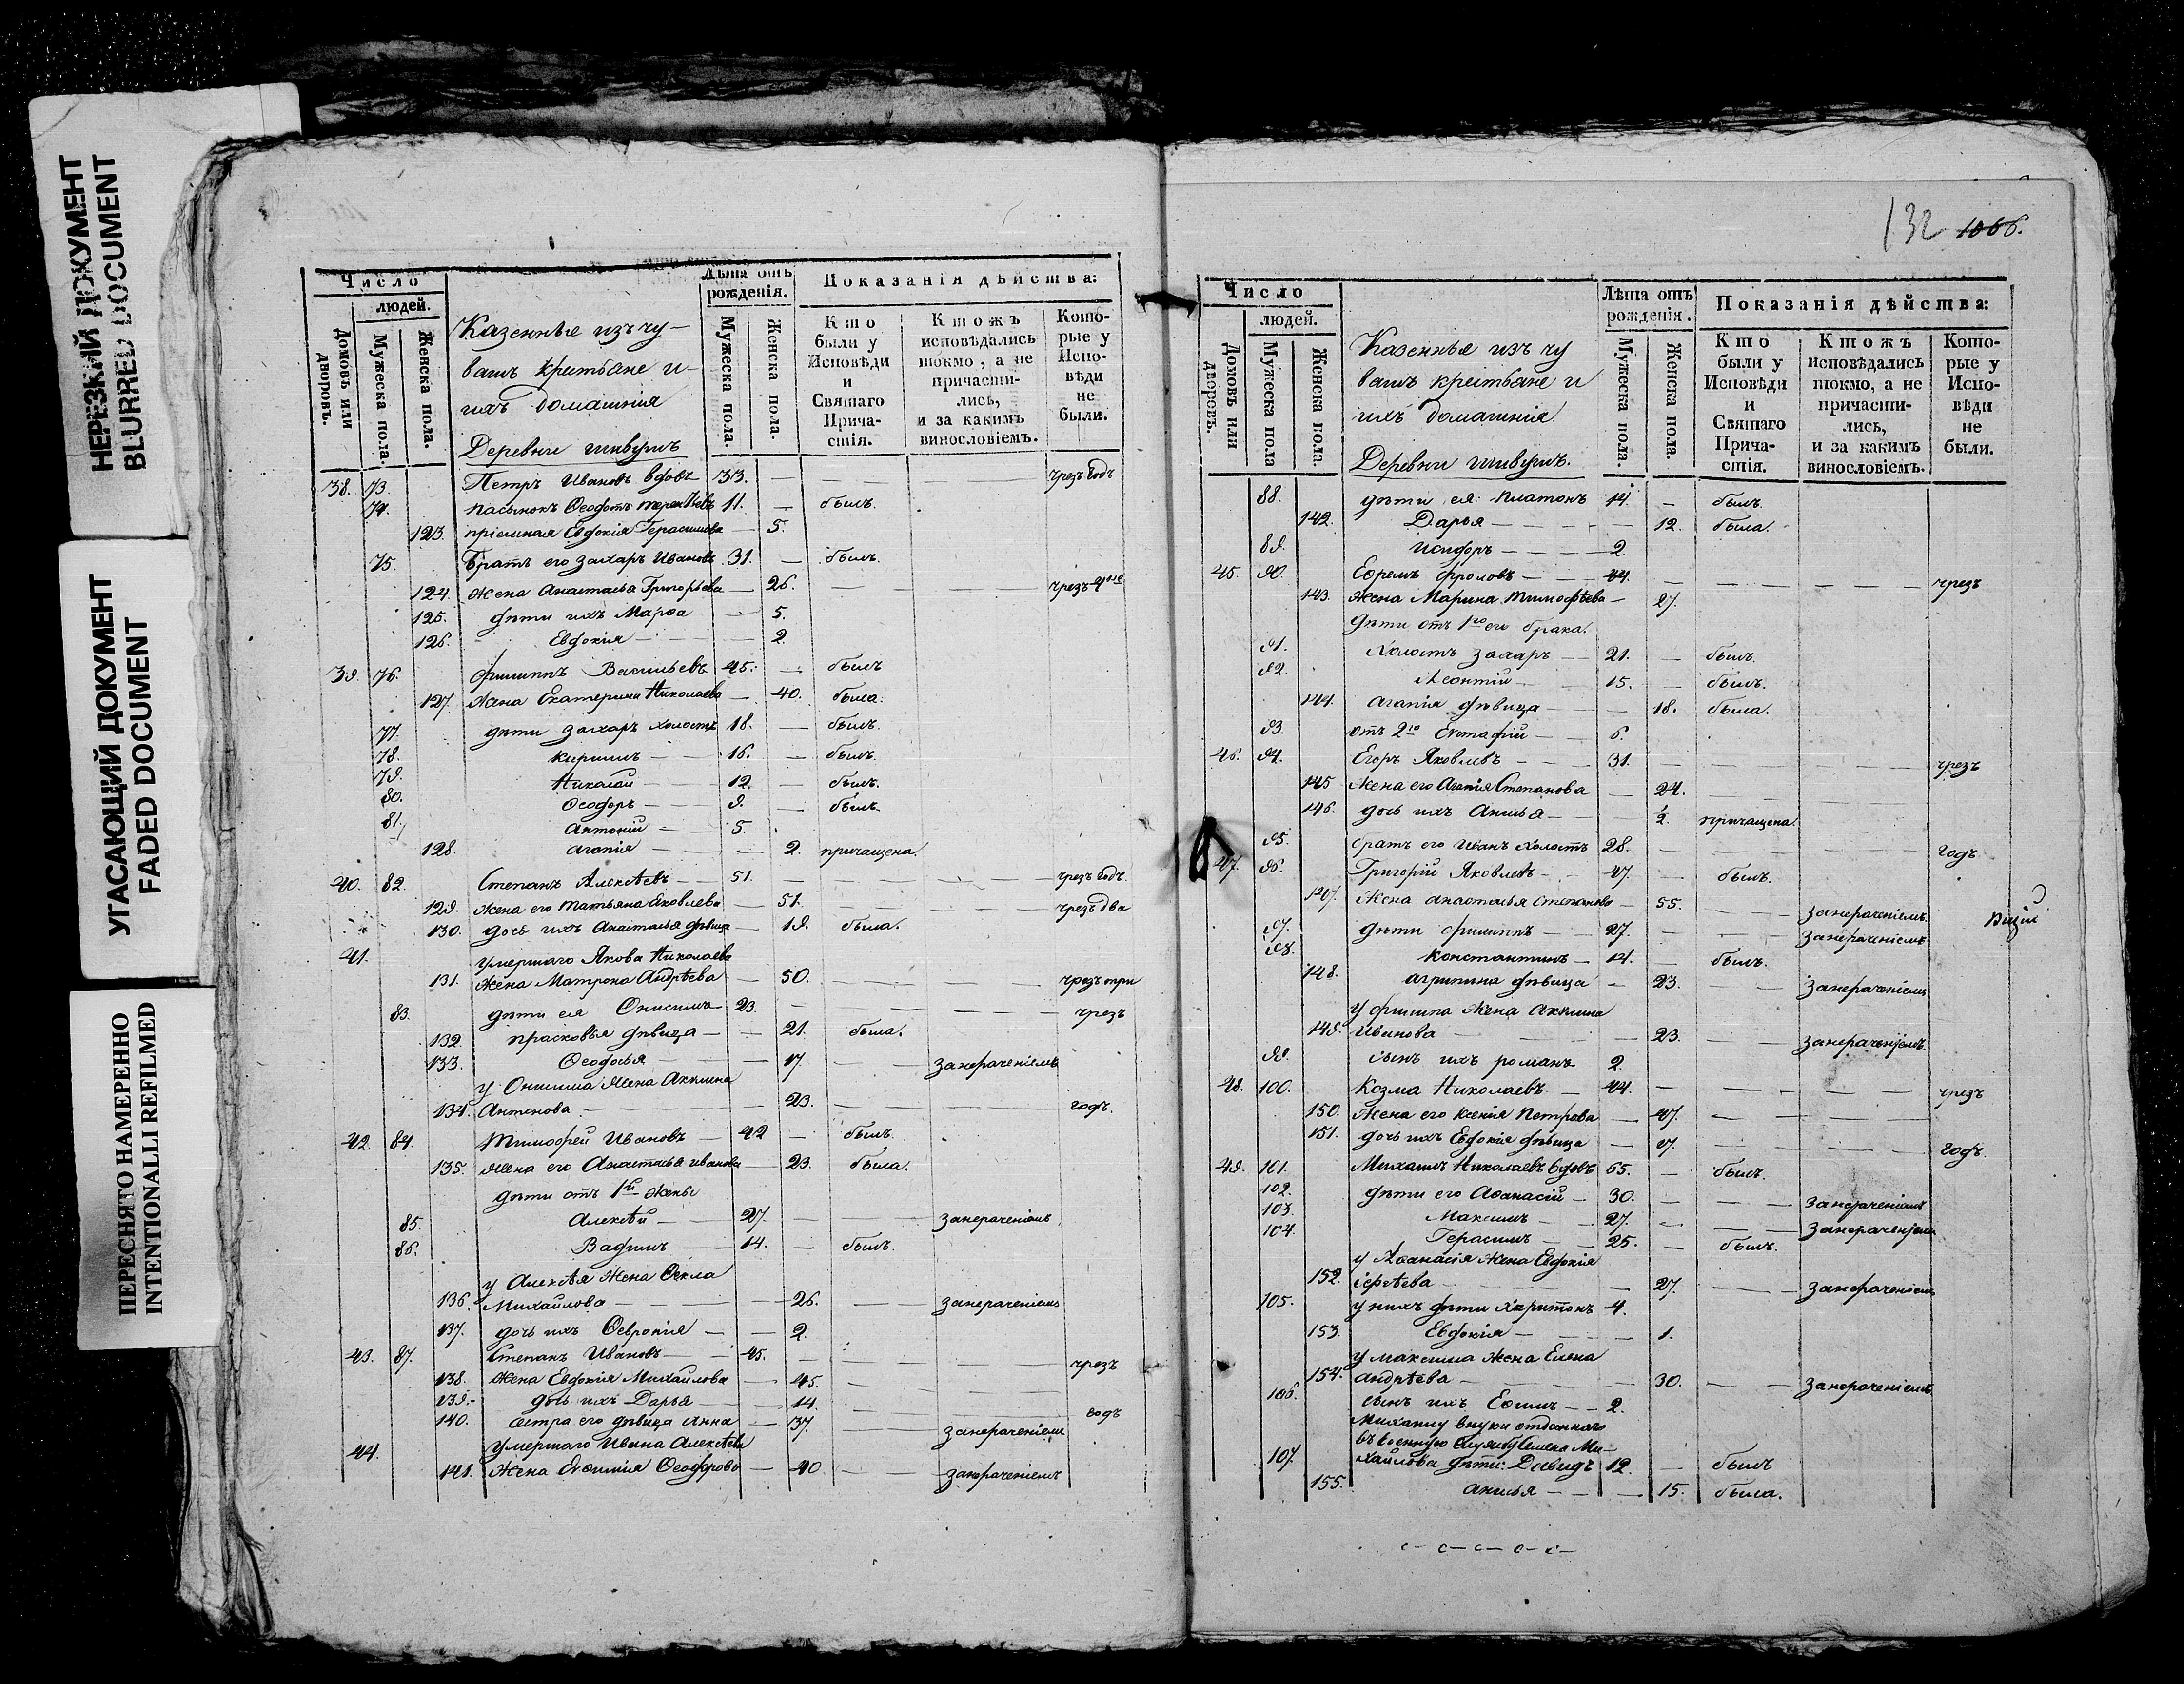 НЕРЕЗКИЙ ДОКУМЕНТ
BLURRED DOCUMENT
УГАСАЮЩИЙ ДОКУМЕНТ
FADED DOCUMENT
ПЕРЕСНЯТО НАМЕРЕННО
INTENTIONALLI REFILMED
Число
людей.
Домовъ или дворовъ.
Мужеска пола.
Женска пола.
Казенные изъ чу-
вашъ крестьяне и
ихъ домашнія
Деревни шибулгъ
Лѣта отъ рожденія.
Мужеска пола.
Женска пола.
Показанія дѣйства:
Кто были у Исповѣди и Святаго Прича-стія.
Ктожъ исповѣдались токмо, а не причасти-лись, и за какимъ винословіемъ.
Кото-рые у Испо-вѣди не были.
38. 73. Петръ Ивановъ вдовъ 33. — — — чрезъ годъ
74. пасынокъ Ѳеодотъ терентьевъ 11. — былъ.
123. пріемная Евдокія Герасимова — 5.
75. Братъ его Захаръ Ивановъ 31. — былъ.
124. жена Анастасья Григорьева — 26. — —
125. дѣти ихъ Марѳа — 5.
126. Евдокія — — 2.
39. 76. Филиппъ Васильевъ 45. — былъ
127. жена Екатерина Николаева — 40. была.
77. дѣти Захаръ холостъ 18. — былъ.
78. Кирилъ — 16. — былъ.
79. Николай — 12. — былъ.
80. Ѳеодоръ — 9. — былъ.
81. Антоній — 5.
128. агапія — — 2. причащена.
40. 82. Степанъ Алексѣевъ — 51. — — — чрезъ годъ.
129. жена его татьяна яковлева — 51. — — чрезъ два
130. дочь ихъ Анастасья дѣвица — 19. была.
41. умершаго Якова Николаева
131. жена Матрона Андрѣева — 50. — — — чрезъ три
83. дѣти ея Онисимъ 23. — — — чрезъ
132. прасковья дѣвица — — 21. была.
133. Ѳеодосья — — 17. — занераченіемъ
у Онисима жена Акилина
134. Антонова — — 23. — годъ.
42. 84. Тимофей Ивановъ — 42 — былъ.
135. жена его Анастасья иванова — 23. была.
дѣти отъ 1й жены
85. Алексѣй — 27. — — занераченіемъ
86. Вадимъ — 14. — былъ.
у Алексѣя жена Ѳекла
136. Михайлова — — 26. — занераченіемъ
137. дочь ихъ Ѳевронія — — 2.
43. 87. Степанъ Ивановъ — 45. — — — чрезъ
138. жена Евдокія Михайлова — 45. —
139. дочь ихъ Дарья — 14. —
140. сестра его дѣвица Анна — 37. — занераченіемъ годъ
44. умершаго Ивана Алексѣева
141. жена Евѳимія Ѳеодорова — 40. — занераченіемъ
132 106б.
Число
людей.
Домовъ или дворовъ.
Мужеска пола
Женска пола.
Казенные изъ чу
вашъ крестьяне и
ихъ домашнія
Деревни шибулгъ.
Лѣта отъ рожденія.
Мужеска пола.
Женска пола.
Показанія дѣйства:
Кто были у Исповѣди и Святаго Прича-стія.
Ктожъ исповѣдались токмо, а не причасти-лись, и за какимъ винословіемъ.
Кото-рые у Испо-вѣди не были.
88. дѣти ея: платонъ 14. — былъ.
142. Дарья — — 12. была.
89. — 2
45. 90. Ефремъ фроловъ — 44. — — — чрезъ
143. жена Марина тимофѣева — 27.
дѣти отъ 1го его брака.
91. Холостъ Захаръ — 21. — былъ.
92. Леонтій — 15. — былъ.
144. агапія дѣвица — — 18. была.
93. отъ 2го Евстафій — 6
46. 94. Егоръ Яковлевъ — 31. — — — чрезъ
145 жена его Агапія Степанова — 24. — —
146. дочь ихъ Анисья — 1/2. причащена.
95. братъ его Иванъ холостъ 28. — — — годъ
47. 96. Григорій Яковлевъ — 47. — былъ.
147. жена анастасья степанова — 55. — — занераченіемъ
97. дѣти филиппъ — 27. — — занераченіемъ
98. Константинъ — 14. — былъ.
148. агрипина дѣвица — 23. — — занераченіемъ
у филипа жена Акилина
149. Иванова — — 23. — — занераченіемъ.
99. сынъ ихъ романъ 2.
48. 100. Козма Николаевъ — 44. — — — чрезъ
150. жена его ксенія Петрова — 47. — —
151. дочь ихъ Евдокія дѣвица — 17. — — годъ.
49. 101. Михаилъ Николаевъ вдовъ 65. — былъ.
102. дѣти его Аѳанасій — 30. — — занераченіемъ
103. Максимъ — 27. — — занераченіемъ
104. Герасимъ — 25. — былъ.
у Аѳанасія жена Евдокія
152. Сергѣева — — 27. — — занераченіемъ
105. у нихъ дѣти Харитонъ 4.
153. Евдокія — — 1.
у максима жена Елена
154. андрѣева — — 30. — — занераченіемъ
106. сынъ ихъ Еѳимъ — 2.
Михаилу внуки отданнаго
въ военную службу Семена Ми-
107. хайлова дѣти: Давидъ 12. — былъ
155. анисья — — 15. была.